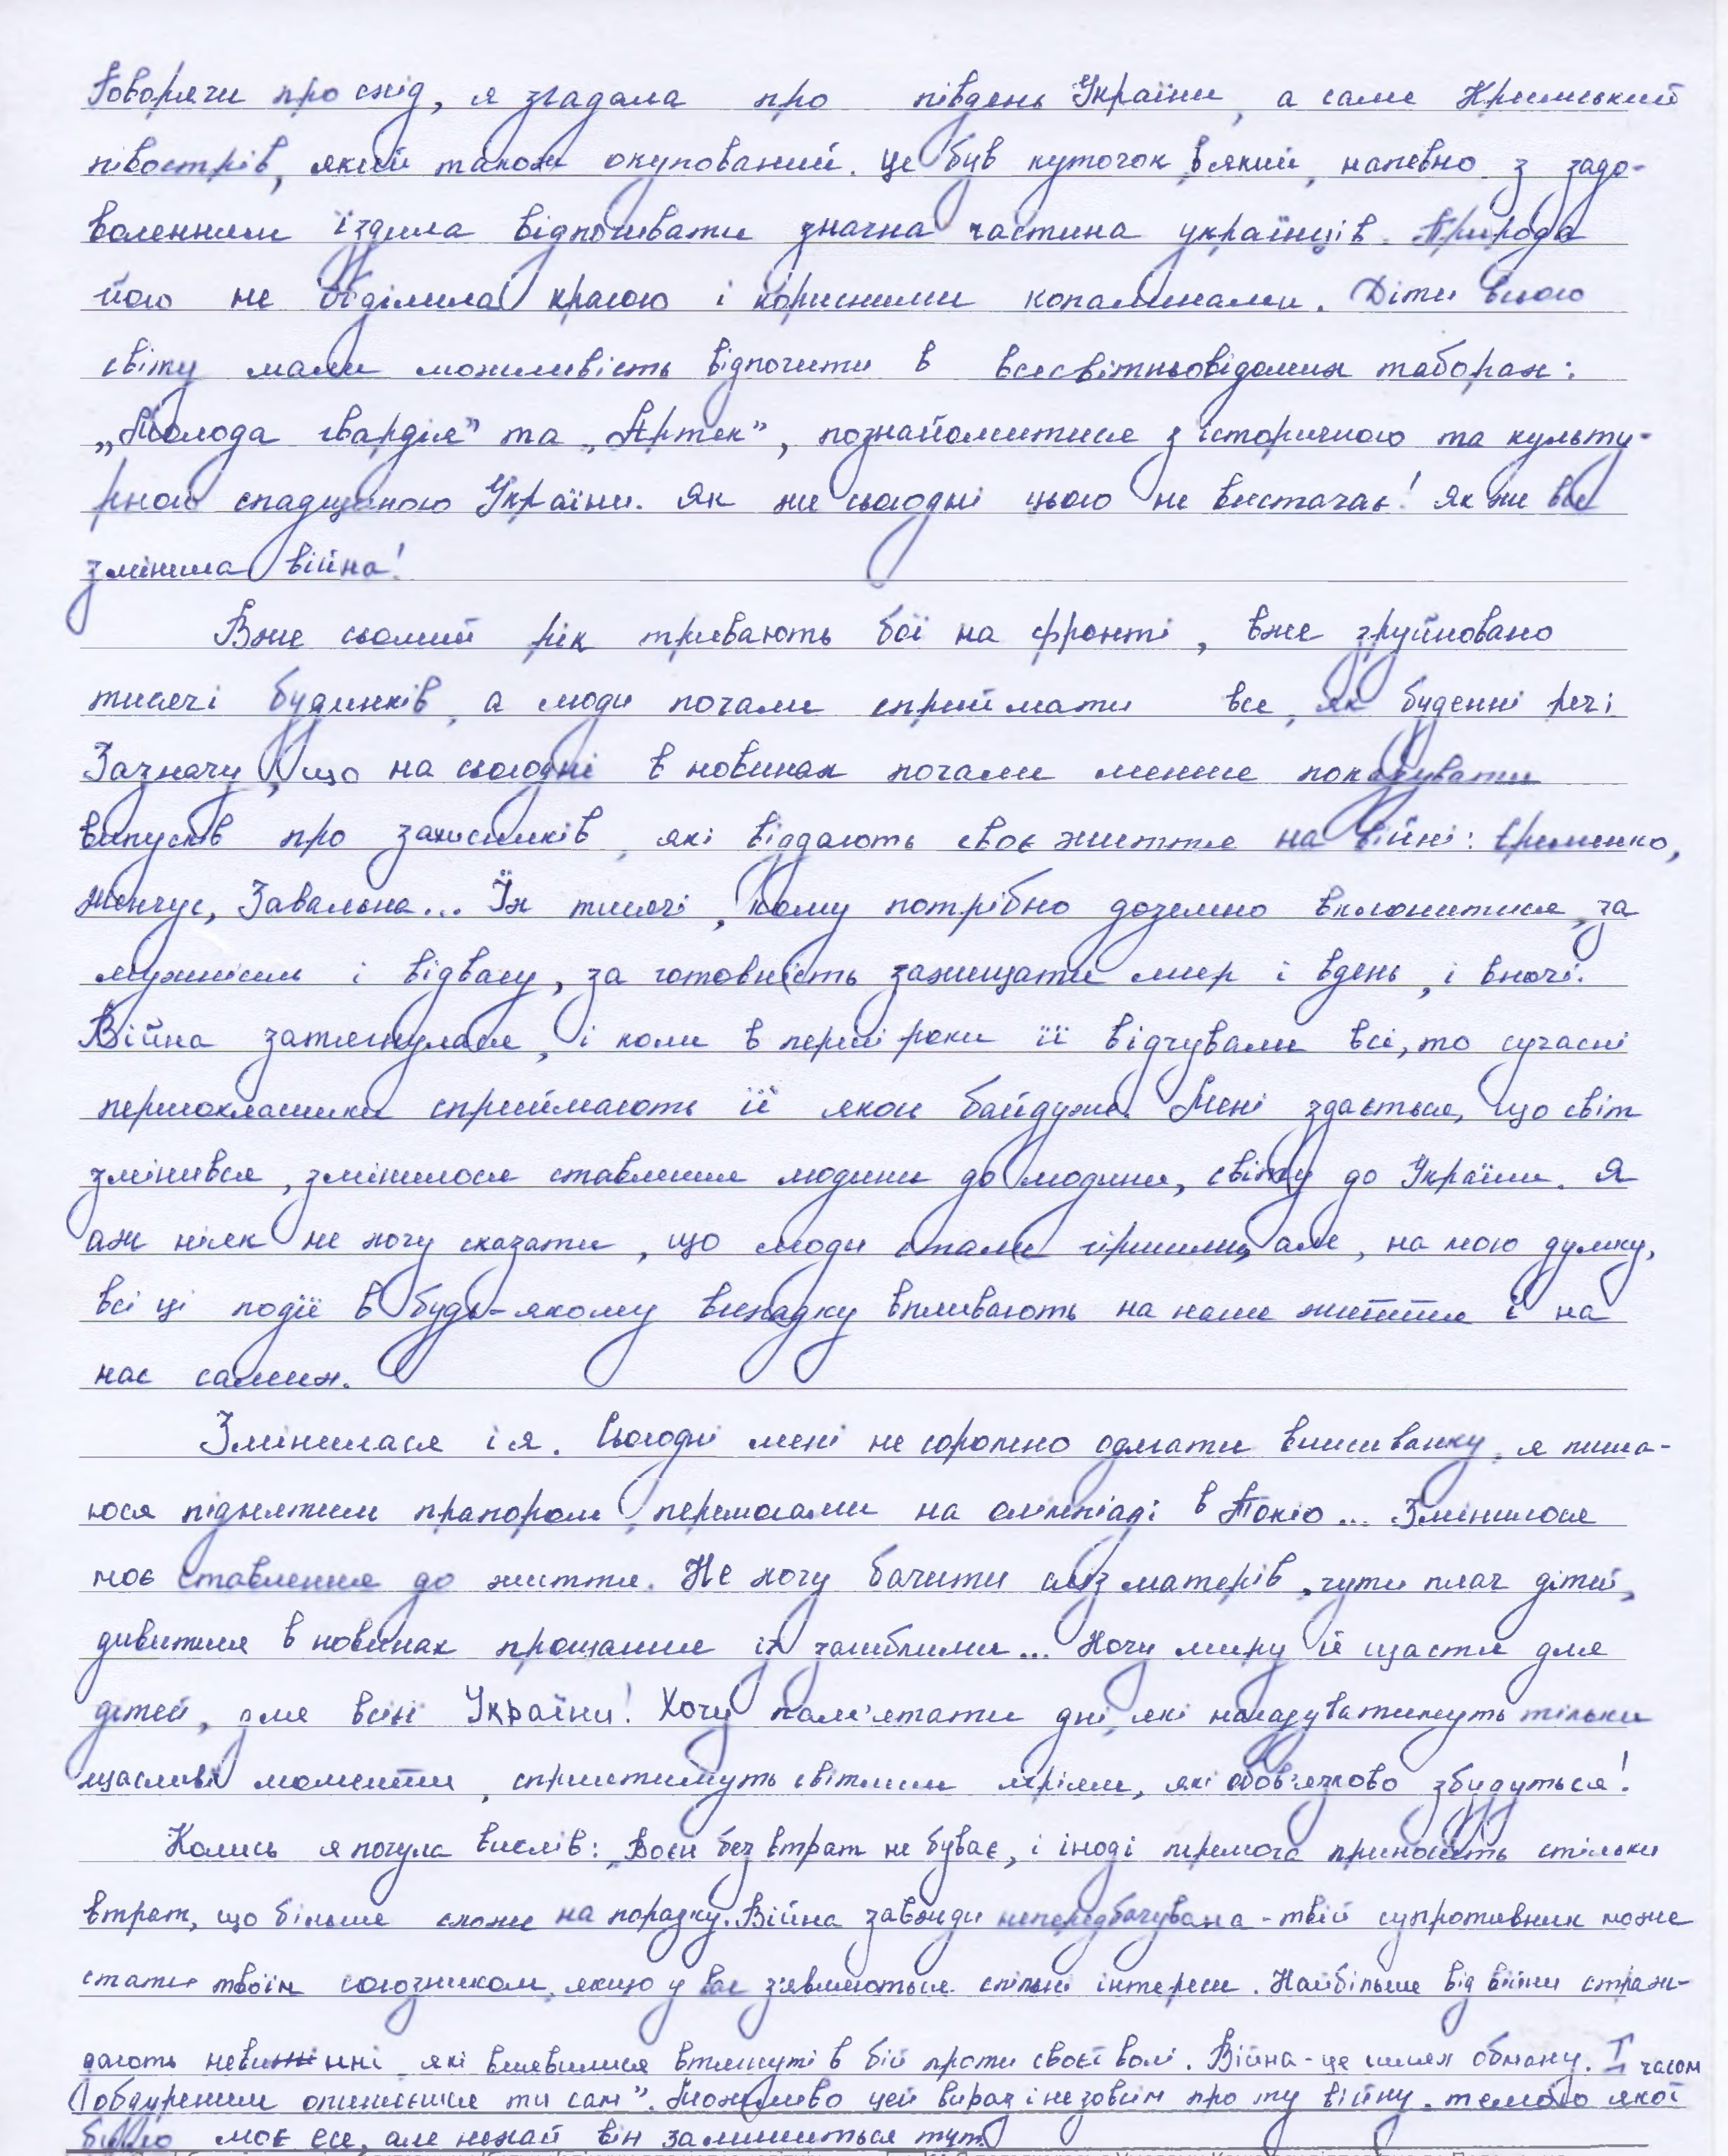 Говорячи про схід, я згадала про південь України, а саме Кримський
півострів, який також окупований. Це був куточок, в який, напевно з задо-
воленням їздила відпочивати значна частина українців. Природа
його не обділила красою і корисними копалинами. Діти всього
світу мали можливість відпочити в всесвітньовідомих таборах:
„Молода гвардія" та „Артек", познайомитися з історичною та культу-
рною спадщиною України. Як же сьогодні цього не вистачає! Як же все
змінила війна!
Вже сьомий рік тривають бої на фронті, вже зруйновано
тисячі будинків, а люди почали сприймати все, як буденні речі
Зазначу, що на сьогодні в новинах почали менше показувати
випусків про захисників, які віддають своє життя на війні: Єременко,
Женчус, Завальна... Їх тисячі, кому потрібно доземно вклонитися, за
мужність і відвагу, за готовність захищати мир і вдень, і вночі.
Війна затягнулася, і коли в перші роки її відчували всі, то сучасні
першокласники сприймають її якось байдуже. Мені здається, що світ
змінився, змінилося ставлення людини до людини, світу до України. Я
аж ніяк не хочу сказати, що люди стали гіршими, але, на мою думку,
всі ці події в будь-якому випадку впливають на наше життя і на
нас самих.
Змінилася і я. Сьогодні мені не соромно одягати вишиванку, я пиша-
юся піднятим прапором, перемогами на олімпіаді в Токіо... Змінилося
моє ставлення до життя. Не хочу бачити сліз матерів, чути плач дітей,
дивитися в новинах прощання із загиблими... Хочу миру й щастя для
дітей, для всієї України! Хочу пам'ятати дні, які нагадуватимуть тільки
щасливі моменти, сприятимуть світлим мріям, які обов'язково збудуться!
Колись я почула вислів: „Воєн без втрат не буває, і іноді перемога приносить стільки
втрат, що більше схоже на поразку. Війна завжди непередбачувана - твій супротивник може
стати твоїм союзником, якщо у вас з'являються спільні інтереси. Найбільше від війни страж-
дають невинні, які виявилися втягнуті в бій проти своєї волі. Війна - це шлях обману. І часом
обдуреним опинієшся ти сам". Можливо цей вираз і не зовсім про ту війну, темою якої
було моє есе, але нехай він залишиться тут.